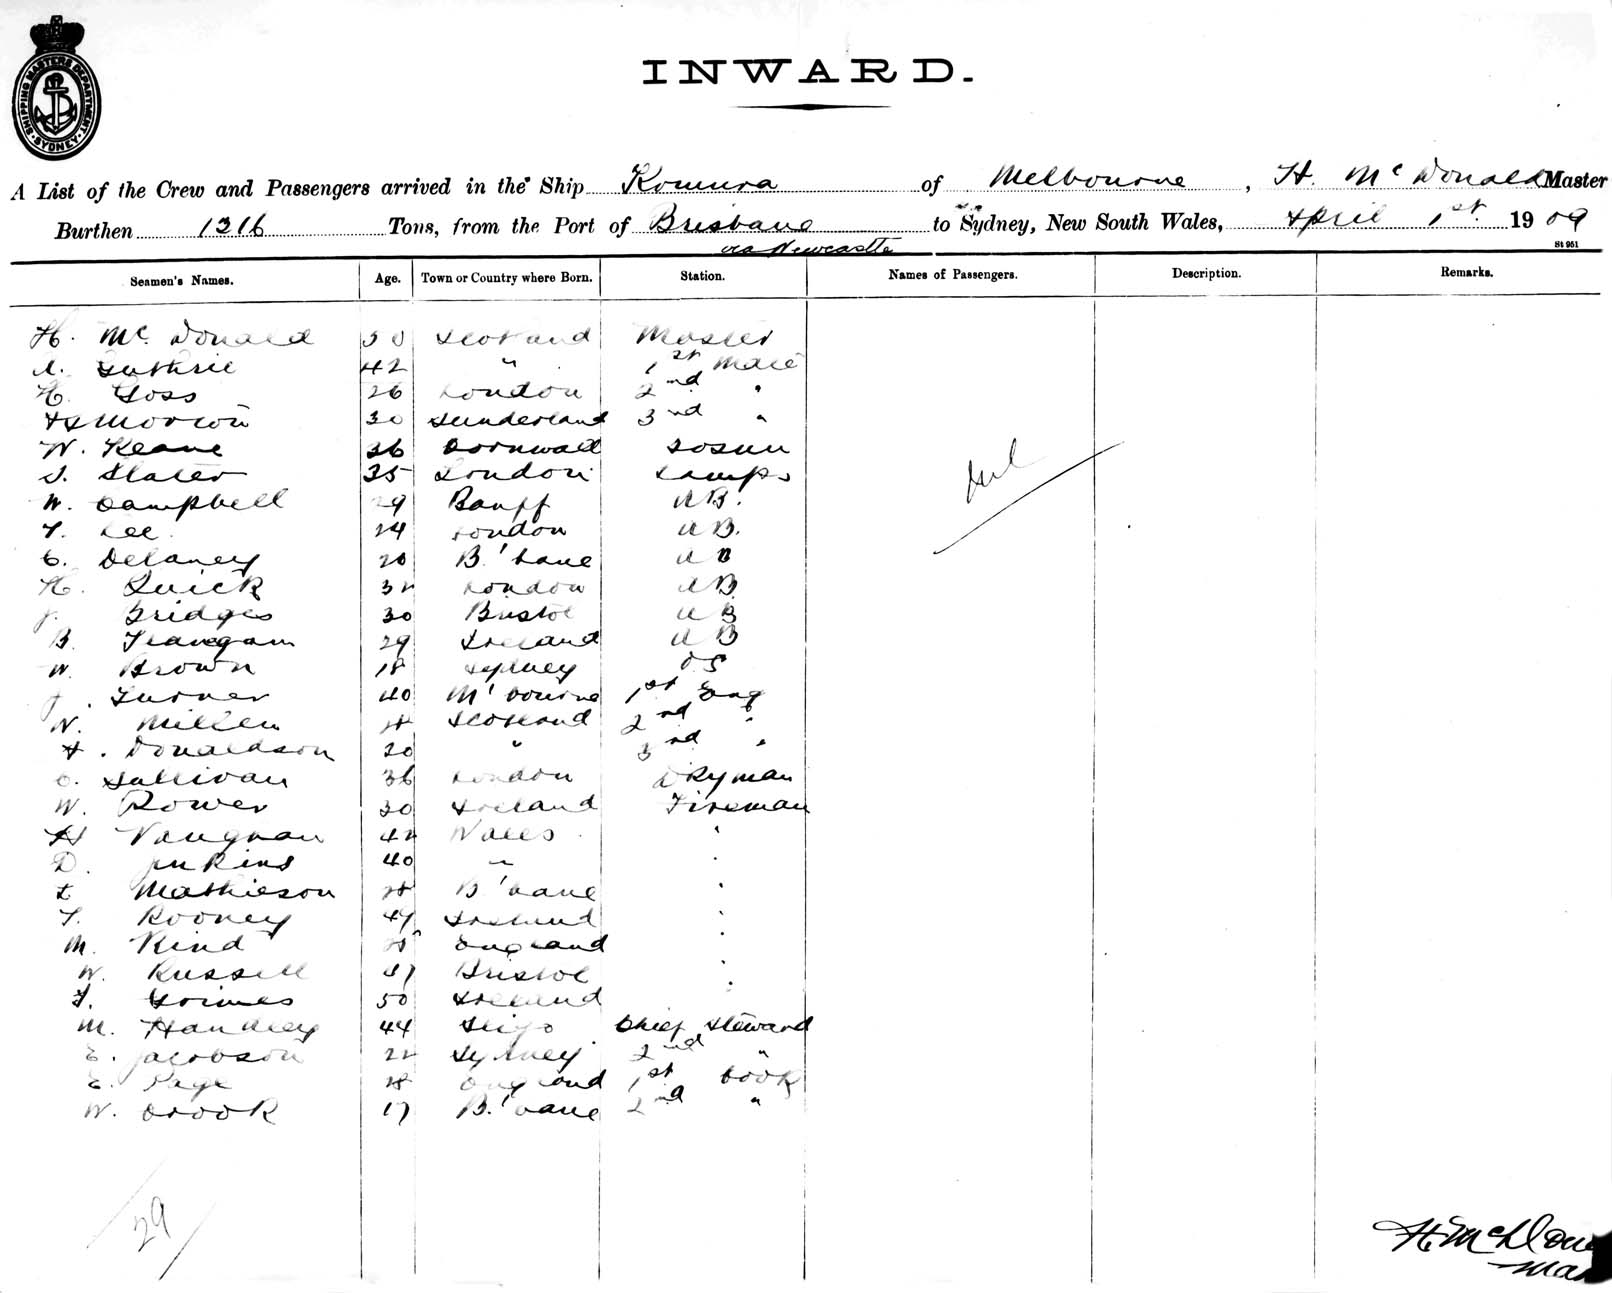 SHIPPING MASTERS DEPARTMENT
SYDNEY
INWARD.
A List of the Crew and Passengers arrived in the Ship Komura of Melbourne, H. McDonald Master
Burthen 1216 Tons, from the Port of Brisbane to Sydney, New South Wales, April 1st. 1909
via Newcastle
St 951
Seamen's Names. Age. Town or Country where Born. Station. Names of Passengers. Description. Remarks.
H. Mc Donald 50 Scotland Master
A. Guthrie 42 " 1st Mate
H. Goss 26 London 2nd "
30 Sunderland 3rd "
W. Keane 36 Cornwall Bosun
S. Slater 35 London Lamps
W. Campbell 29 Banff AB.
T. Lee 24 London AB.
C. Delaney 20 B'bane AB
H. Quick 32 London AB
J. Bridges 30 Bristol AB
B. Flanegan 29 Ireland AB
W. Brown 18 Sydney OS
J. Turner 40 M'bourne 1st Eng
W. Millen Scotland 2nd "
A. Donaldson 20 " 3rd "
O. Sullivan 36 London Dkyman
W. Power 30 Ireland Fireman
H Vaughan 42 Wales "
D. Jenkins 40 " "
L Mathieson 28 B'bane "
T. Rooney 47 Ireland "
M. Kind 25 England "
W. Russell 47 Bristol "
T. Grimes 50 Ireland "
M. Handley 44 Sligo Chief Steward
E. Jacobson 22 Sydney 2nd "
E. Page 28 England 1st Cook
W. Crook 17 B'bane 2nd "
Nil
29
H. McDon
Mas